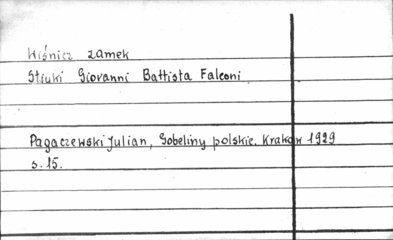 Wiśnicz zamek
Stiuki Giovanni Battista Falconi
Pagaczewski Julian, Gobeliny polskie. Kraków 1929
s. 15.